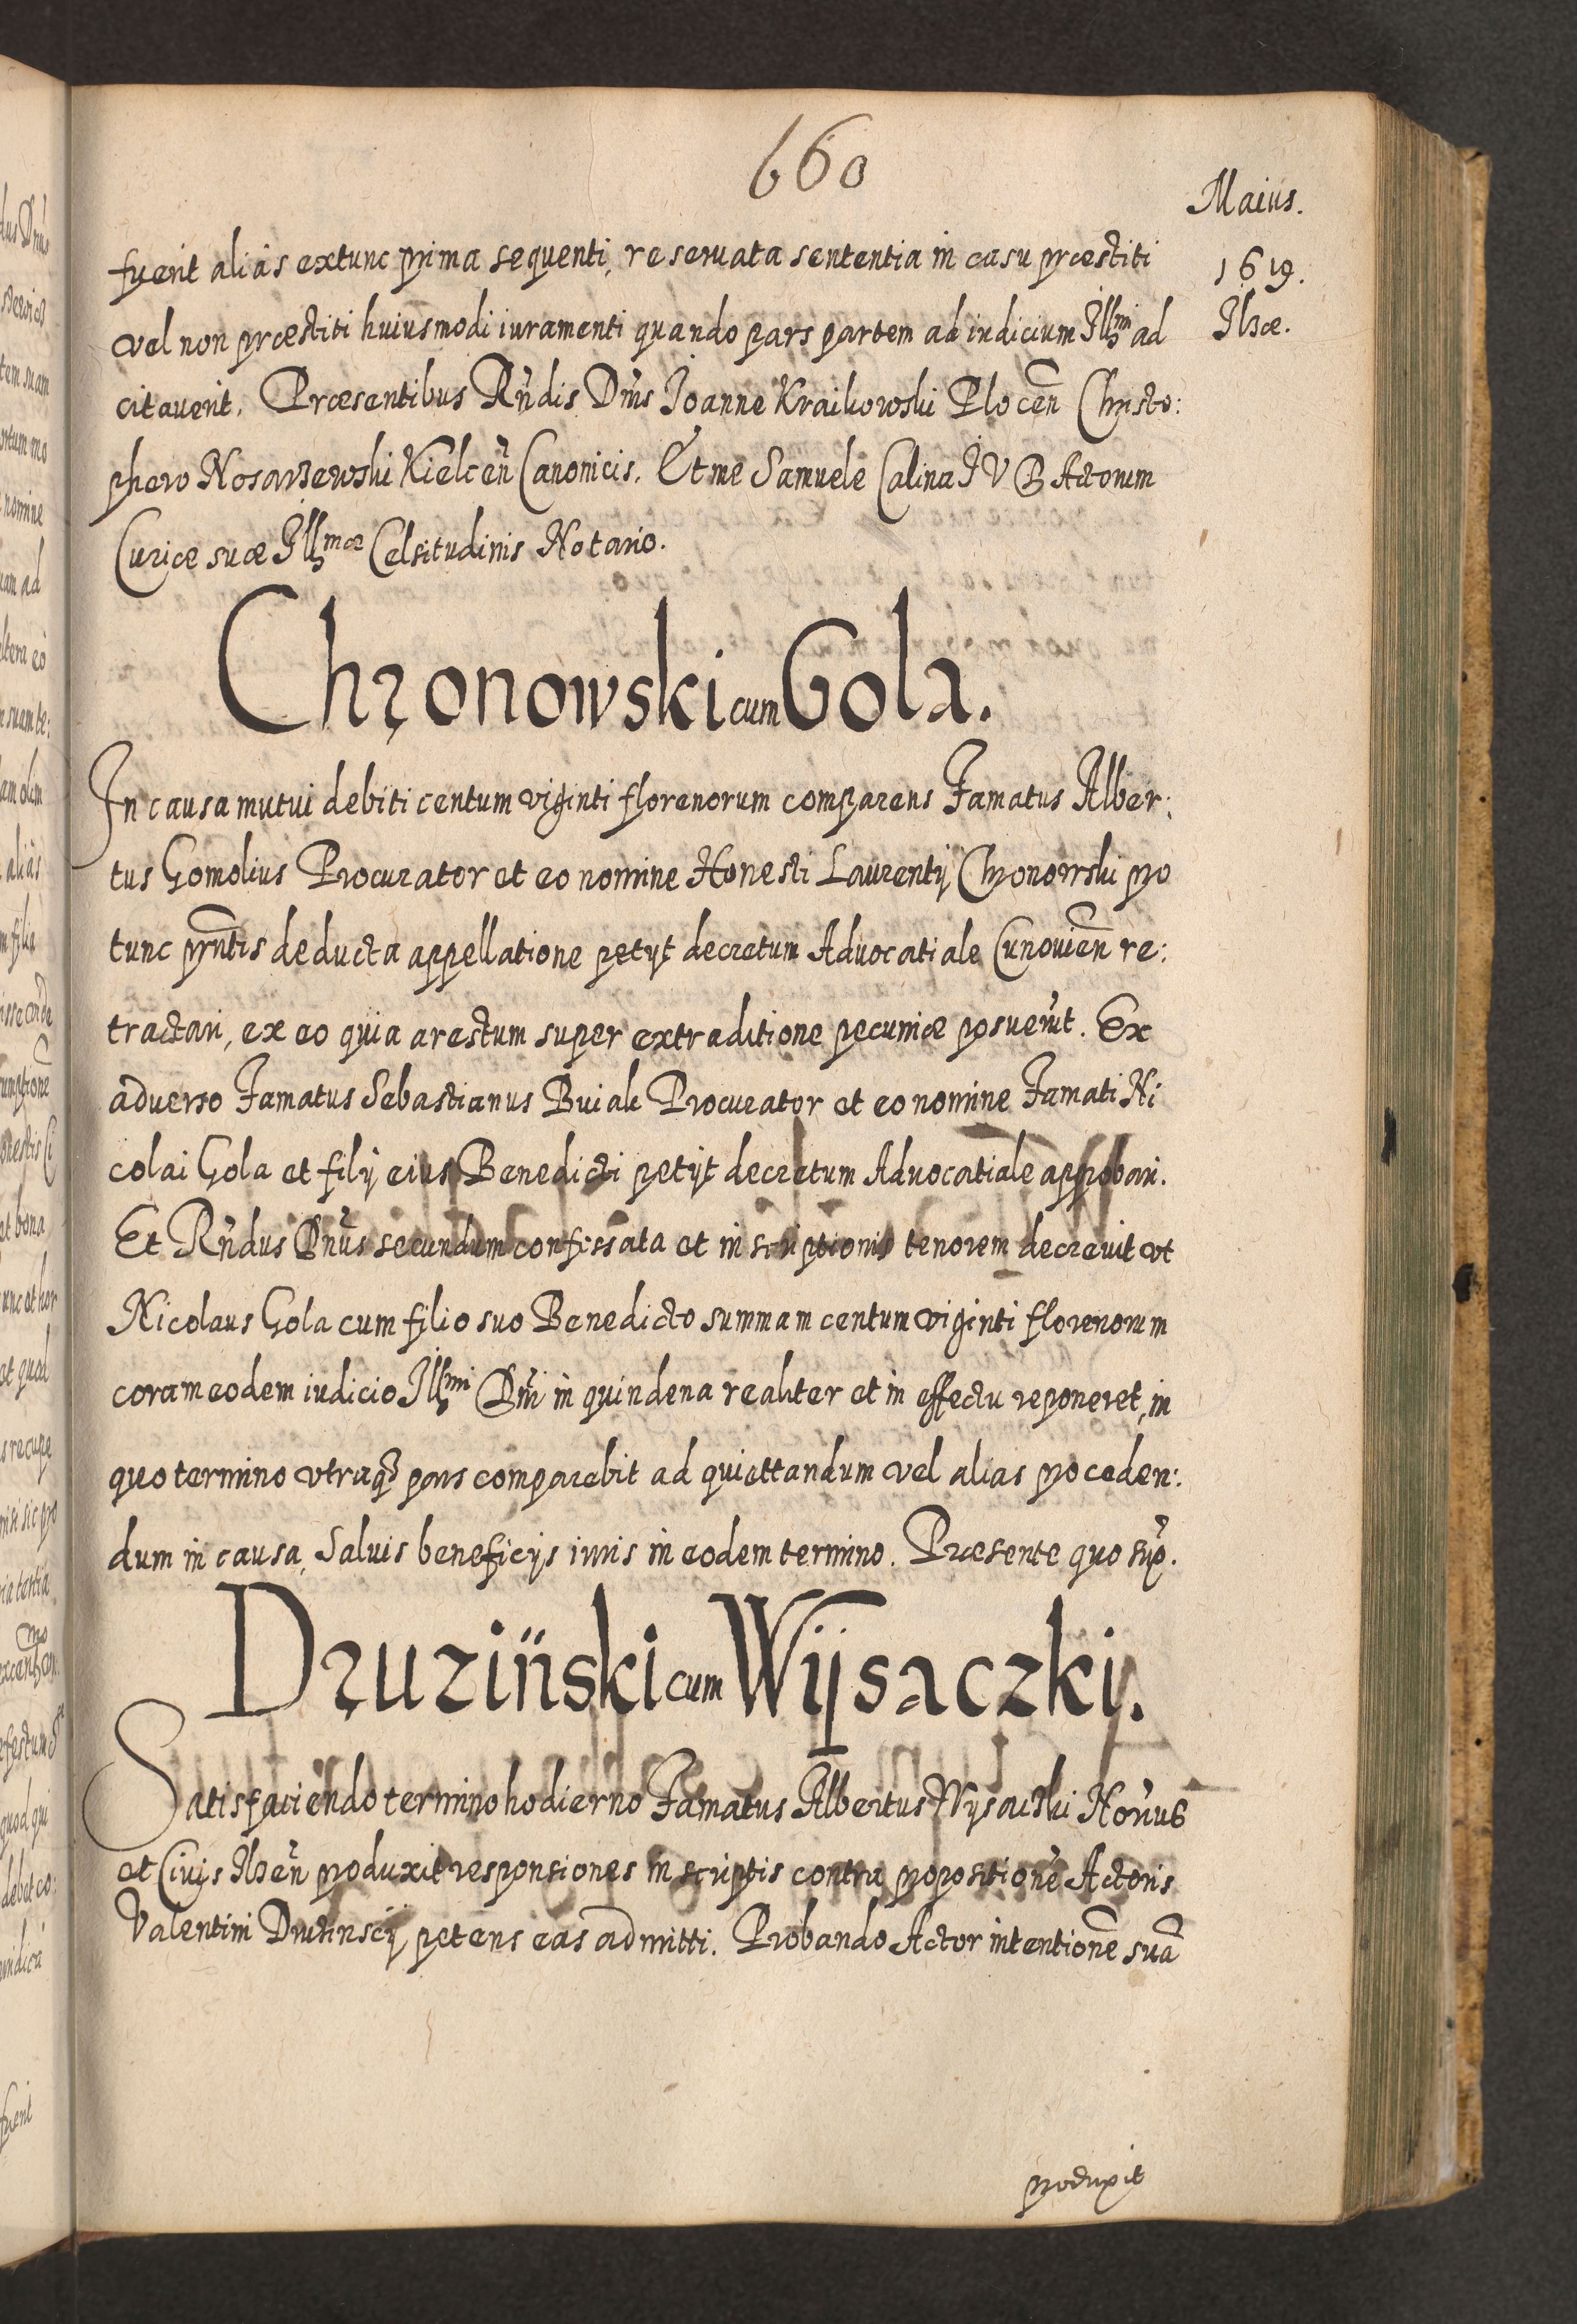 660
Maius.
1619.
Ilzæ.
fuerit aliàs extunc prima sequenti, reseruata sententia in casu præstiti
vel non præstiti huiusmodi iuramenti quando pars partem ad iudicium Illmi ad
citauerit. Præsentibus Rńdis Dńis Ioanne Kraikowski Plocen̄ Christo:
phero Nosarzewski Kielcen̄ Canonicis. Et me Samuele Calina I V D Actorum
Curiæ suæ Illmæ Celsitudinis Notario.
Chronowski cum Gola.
In causa mutui debiti centum viginti florenorum comparens Famatus Alber:
tus Gomolius Procurator et eo nomine Honesti Laurentij Chronowski pro
tunc prn̄tis deducta appellatione petijt decretum Aduocatiale Cunouien̄ re:
tractari, ex eo quia arestum super extraditione pecuniæ posuerit. Ex
aduerso Famatus Sebastianus Buiak Procurator et eo nomine Famati Ni
colai Gola et filij eius Benedicti petijt decretum Aduocatiale approbari.
Et Rńdus Dńus secundum confessata et inscriptionis tenorem decreuit vt
Nicolaus Gola cum filio suo Benedicto summam centum viginti florenorum
coram eodem iudicio Illmi Dńi in quindena realiter et in effectu reponeret, in
quo termino vtraq₃ pars comparebit ad quiettandum vel alias proceden:
dum in causa, Saluis beneficijs iuris in eodem termino. Præsente quo sup.
Druziński cum Wijsaczki.
Satisfaciendo termino hodierno Famatus Albertus Wysaczki
et Ciuis Ilzen̄ produxit responsiones in scriptis contra propositionē Actoris
Valentini petens eas admitti. Probando Actor intentionē suā
produxit